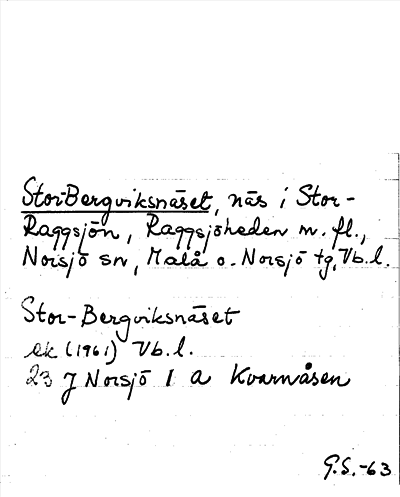 Stor-Bergviksnäset, näs i Stor-
Raggsjön, Raggsjöheden m. fl.,
Norsjö sn, Malå o. Norsjö tg, Vb. l.
Stor-Bergviksnäset
ek (1961) Vb. l.
23 J Norsjö 1 a Kvarnåsen
G.S. -63